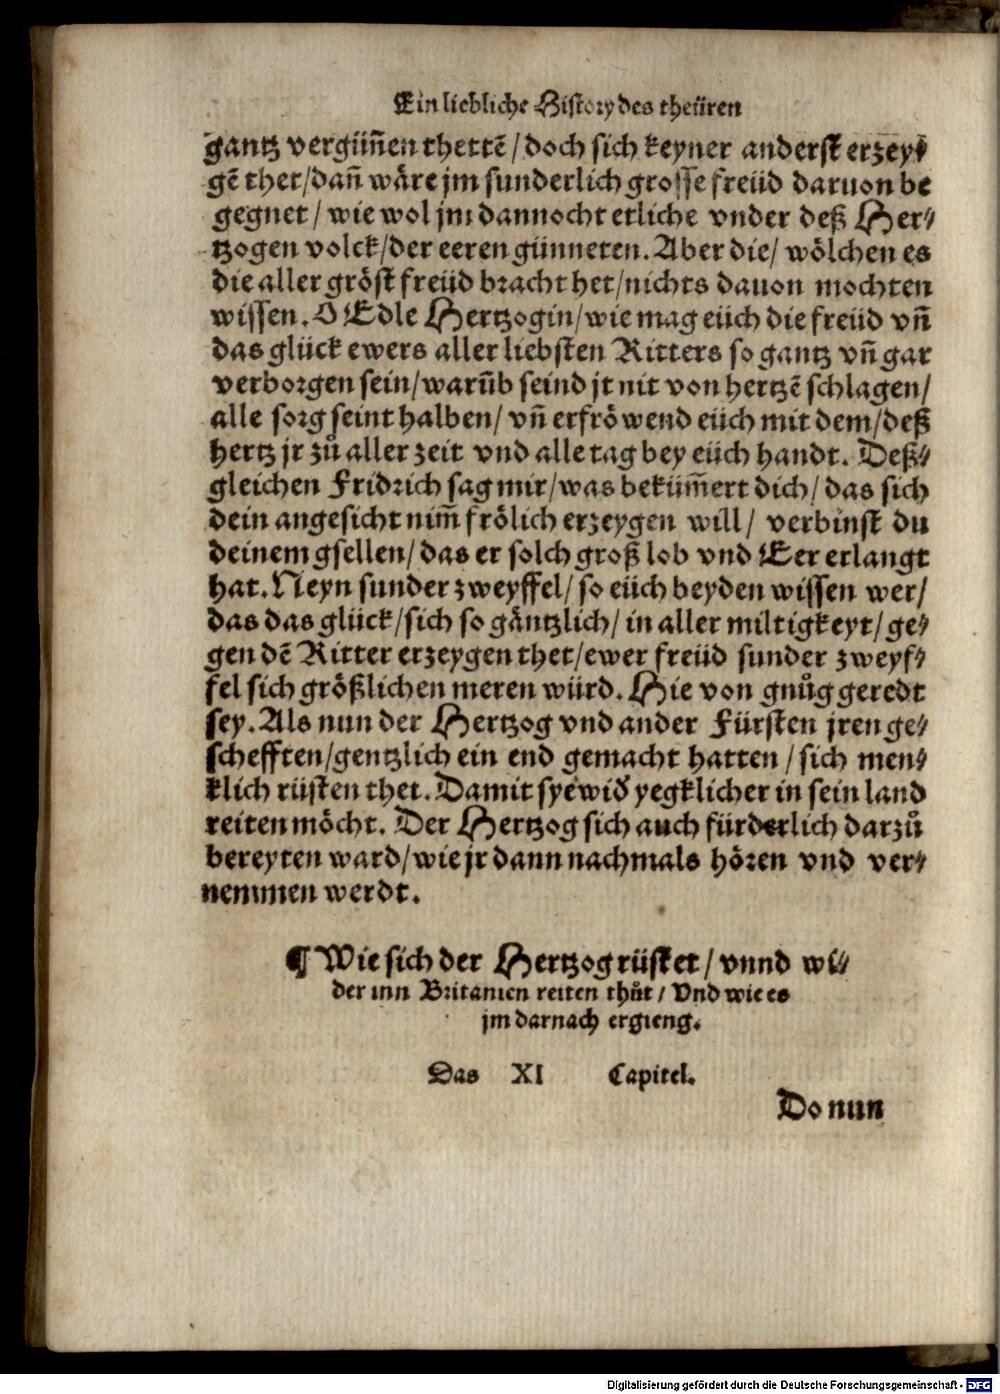 Ein liebliche History des theüren
gantz vergüñen thettẽ / doch sich keyner anderst erzey⸗
gẽ thet / dañ wäre jm sunderlich grosse freüd daruon be
gegnet / wie wol jm dannocht etliche vnder deß Her⸗
tzogen volck / der eeren günneten. Aber die / wölchen es
die aller gröst freüd bracht het / nichts dauon mochten
wissen. O Edle Hertzogin / wie mag eüch die freüd vñ
das glück ewers aller liebsten Ritters so gantz vñ gar
verborgen sein / warũb seind jr nit von hertzẽ schlagen /
alle sorg seint halben / vñ erfröwend eüch mit dem / deß
hertz jr zů aller zeit vnd alle tag bey eüch handt. Deß⸗
gleichen Fridrich sag mir / was bekümert dich / das sich
dein angesicht nim̃ frölich erzeygen will / verbinst du
deinem gsellen / das er solch groß lob vnd Eer erlangt
hat. Neyn sunder zweyffel / so eüch beyden wissen wer /
das das glück / sich so gäntzlich / in aller miltigkeyt / ge⸗
gen dẽ Ritter erzeygen thet / ewer freüd sunder zweyf⸗
fel sich größlichen meren würd. Hie von gnůg geredt
sey. Als nun der Hertzog vnd ander Fürsten jren ge⸗
schefften / gentzlich ein end gemacht hatten / sich men⸗
klich rüsten thet. Damit sye wid̕ yegklicher in sein land
reiten möcht. Der Hertzog sich auch fürderlich darzů
bereyten ward / wie jr dann nachmals hören vnd ver⸗
nemmen werdt.
¶ Wie sich der Hertzog rüstet / vnnd wi⸗
der inn Britanien reiten thůt / Vnd wie es
jm darnach ergieng.
Das XI Capitel.
Do nun
Digitalisierung gefördert durch die Deutsche Forschungsgemeinschaft - DFG